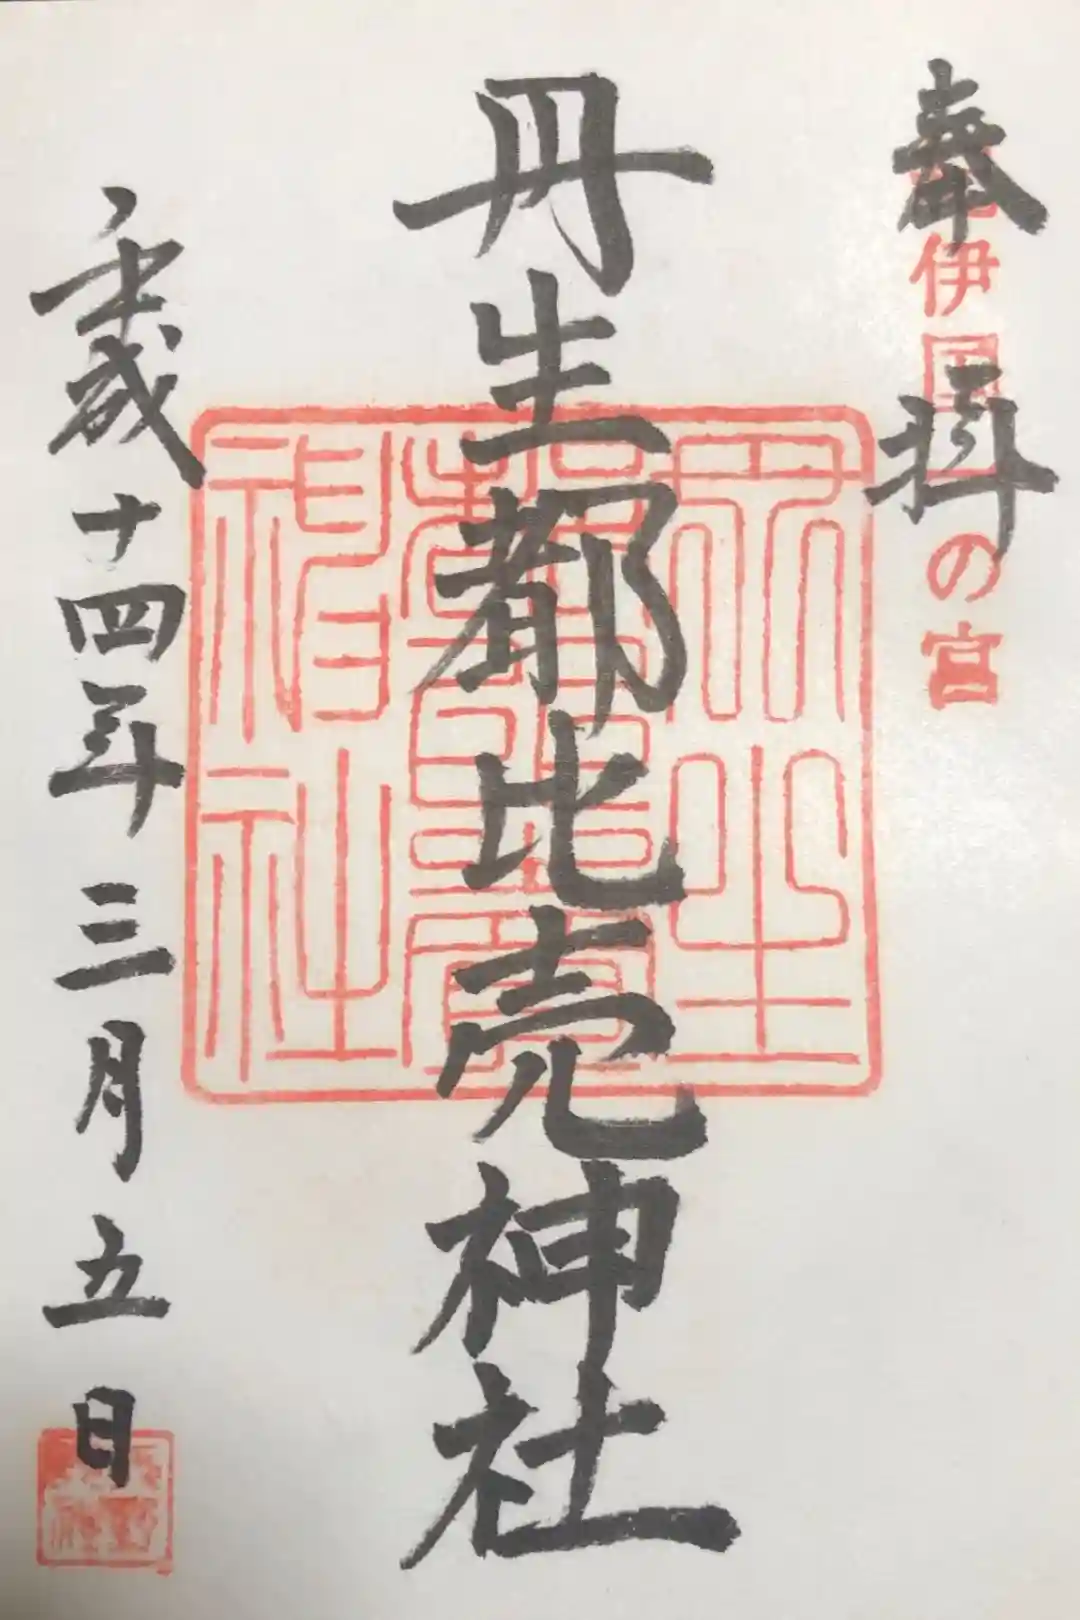 奉拝
紀伊国一の宮
丹生都比売神社
丹生
都比賣
神社
平成十四年三月五日